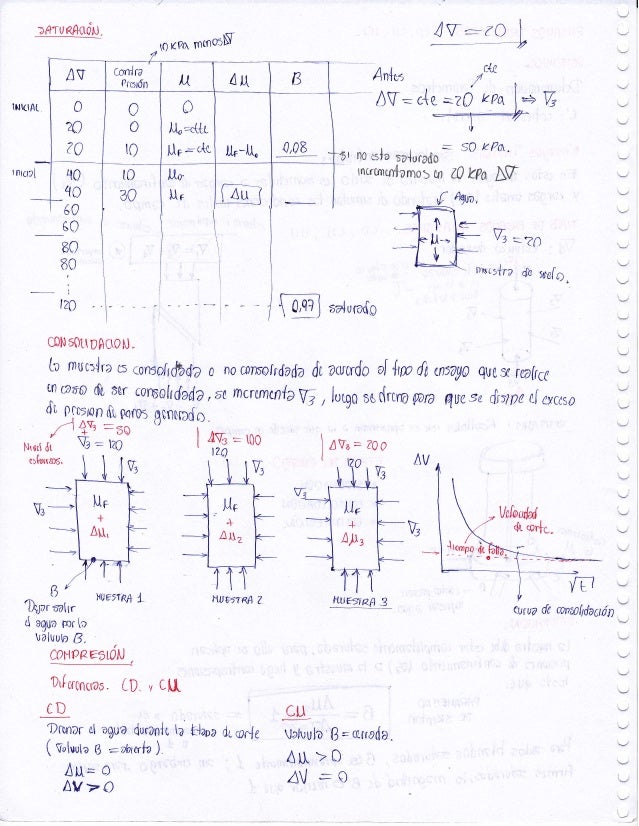 SATURACIÓN.
10 KPa menos Δ∇
Δ∇ = 20
Δ∇ | Contra Presión | μ | Δμ | B
INICIAL 0 0 0
20 0 μo=cte
20 10 μF=cte μF-μo 0,08
Inicial 40 10 μo
40 30 μF Δμ
60
60
80
80
120 0,97 saturado
Antes
cte
Δ∇ = cte = 20 KPa ⇒ ∇3
= 50 KPa.
si no esta saturado
incrementamos en 20 KPa Δ∇
Agua.
μ
∇3 = 20
muestra de suelo.
CONSOLIDACION.
La muestra es consolidada o no consolidada de acuerdo al tipo de ensayo que se realice
en caso de ser consolidada, se incrementa ∇3, luego se drena para que se disipe el exceso
de presion de poros generado.
Nivel de
esfuerzos.
Δ∇3 = 50
+
∇3 = 120
∇3
∇3
μF
+
Δμ1
B
MUESTRA 1
Dejar salir
el agua por la
valvula B.
Δ∇3 = 100
120
∇3
μF
+
Δμ2
MUESTRA 2
Δ∇3 = 200
120
∇3
∇3
μF
+
Δμ3
MUESTRA 3
ΔV
Velocidad
de corte.
tiempo de falla
√t
curva de consolidación
COMPRESIÓN
Diferencias. CD. y CU
CD
Drenar el agua durante la Etapa de corte
(valvula B = abierta).
Δμ = 0
ΔV > 0
CU
Valvula B = cerrada.
Δμ > 0
ΔV = 0